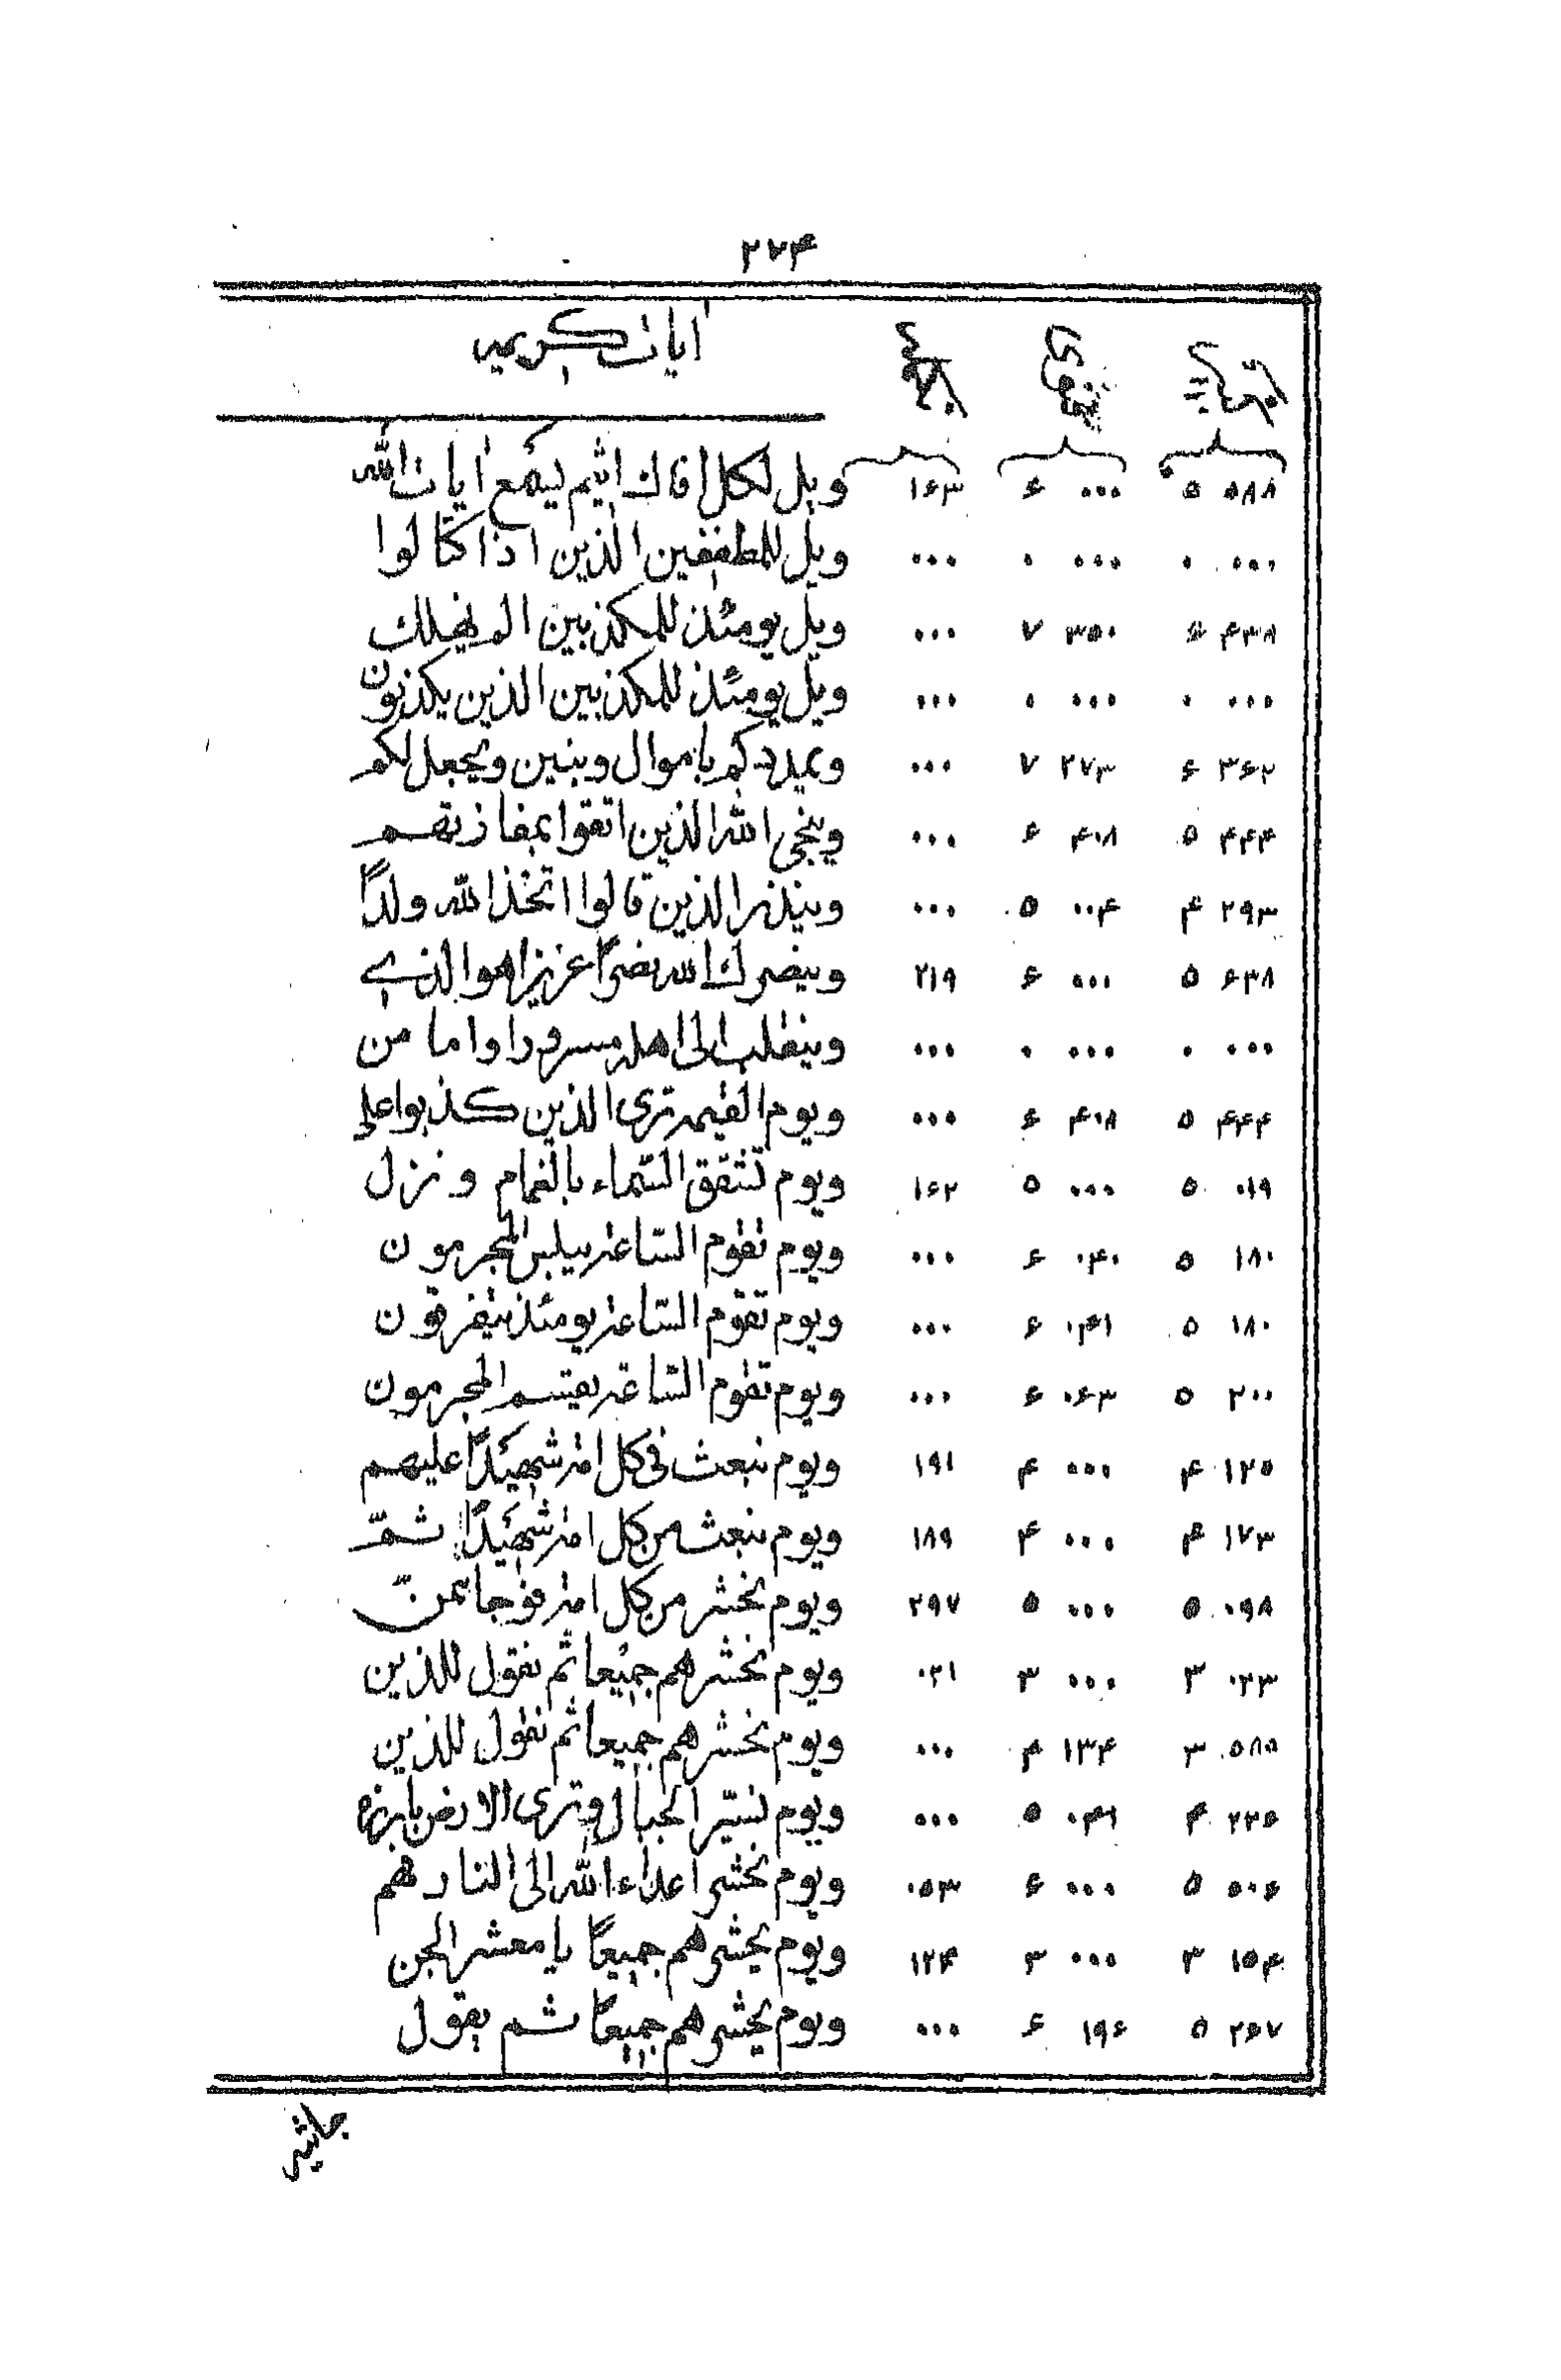 ۲۷۴
ایات کریمه
۵۸۸ ۵ ۰۰۰ ۶ ۱۶۳ ویل لکل افاك اثیم یسمع ایات الله
۰۰۰ ۰ ۰۰۰ ۰ ۰۰۰ ویل للمطففین الذین اذا کتالوا
۴۳۸ ۶ ۳۵۰ ۷ ۰۰۰ ویل یومئذ للمکذبین الم نهلك
۰۰۰ ۰ ۰۰۰ ۰ ۰۰۰ ویل یومئذ للمکذبین الذین یکذبون
۳۶۲ ۶ ۲۷۳ ۷ ۰۰۰ ویمددکم باموال وبنین ویجعل لکم
۴۴۴ ۵ ۴۰۸ ۶ ۰۰۰ وینجی الله الذین اتقوا بمفازتهم
۲۹۳ ۴ ۰۰۴ ۵ ۰۰۰ وینذر الذین قالوا اتخذ الله ولدًا
۶۳۸ ۵ ۰۰۰ ۶ ۲۱۹ وینصرك الله نصرًا عزیزا هو الذی
۰۰۰ ۰ ۰۰۰ ۰ ۰۰۰ وینقلب الی اهله مسرورا واما من
۴۴۴ ۵ ۴۰۸ ۶ ۰۰۰ ویوم القیمه تری الذین کذبوا علی
۰۱۹ ۵ ۰۰۰ ۵ ۱۶۲ ویوم تشقق السّماء بالغمام ونزل
۱۸۰ ۵ ۰۴۰ ۶ ۰۰۰ ویوم تقوم السّاعة یبلس المجرمون
۱۸۰ ۵ ۰۴۱ ۶ ۰۰۰ ویوم تقوم السّاعة یومئذ یتفرقون
۲۰۰ ۵ ۰۶۳ ۶ ۰۰۰ ویوم تقوم السّاعة یقسم المجرمون
۱۲۵ ۴ ۰۰۰ ۴ ۱۹۱ ویوم نبعث فی کل امة شهیدًا علیهم
۱۷۳ ۴ ۰۰۰ ۴ ۱۸۹ ویوم نبعث من کل امة شهیدًا ثمّ
۰۹۸ ۵ ۰۰۰ ۵ ۲۹۷ ویوم نحشر من کل امة فوجا ممّن
۰۲۳ ۳ ۰۰۰ ۳ ۰۲۱ ویوم نحشرهم جمیعا ثم نقول للذین
۵۸۵ ۳ ۱۳۴ ۴ ۰۰۰ ویوم نحشرهم جمیعا ثم نقول للذین
۲۲۶ ۴ ۰۴۱ ۵ ۰۰۰ ویوم نسیّر الجبال وتری الارض بارزه
۵۰۶ ۵ ۰۰۰ ۶ ۰۵۳ ویوم یحشر اعداء الله الی النار هم
۱۵۴ ۳ ۰۰۰ ۳ ۱۲۴ ویوم یحشرهم جمیعًا یا معشر الجن
۲۶۷ ۵ ۱۹۶ ۶ ۰۰۰ ویوم یحشرهم جمیعًا ثم یقول